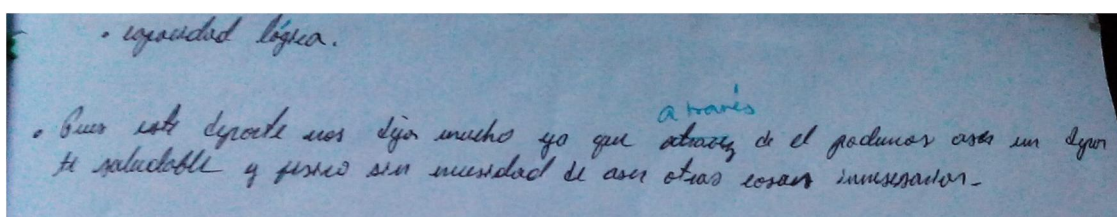 • capacidad lógica.
a través
• Pues este deporte nos dija mucho ya que atravez de el podemos aser un depor
te saludable y fisico sin nucesidad de aser otras cosas innesesarias.